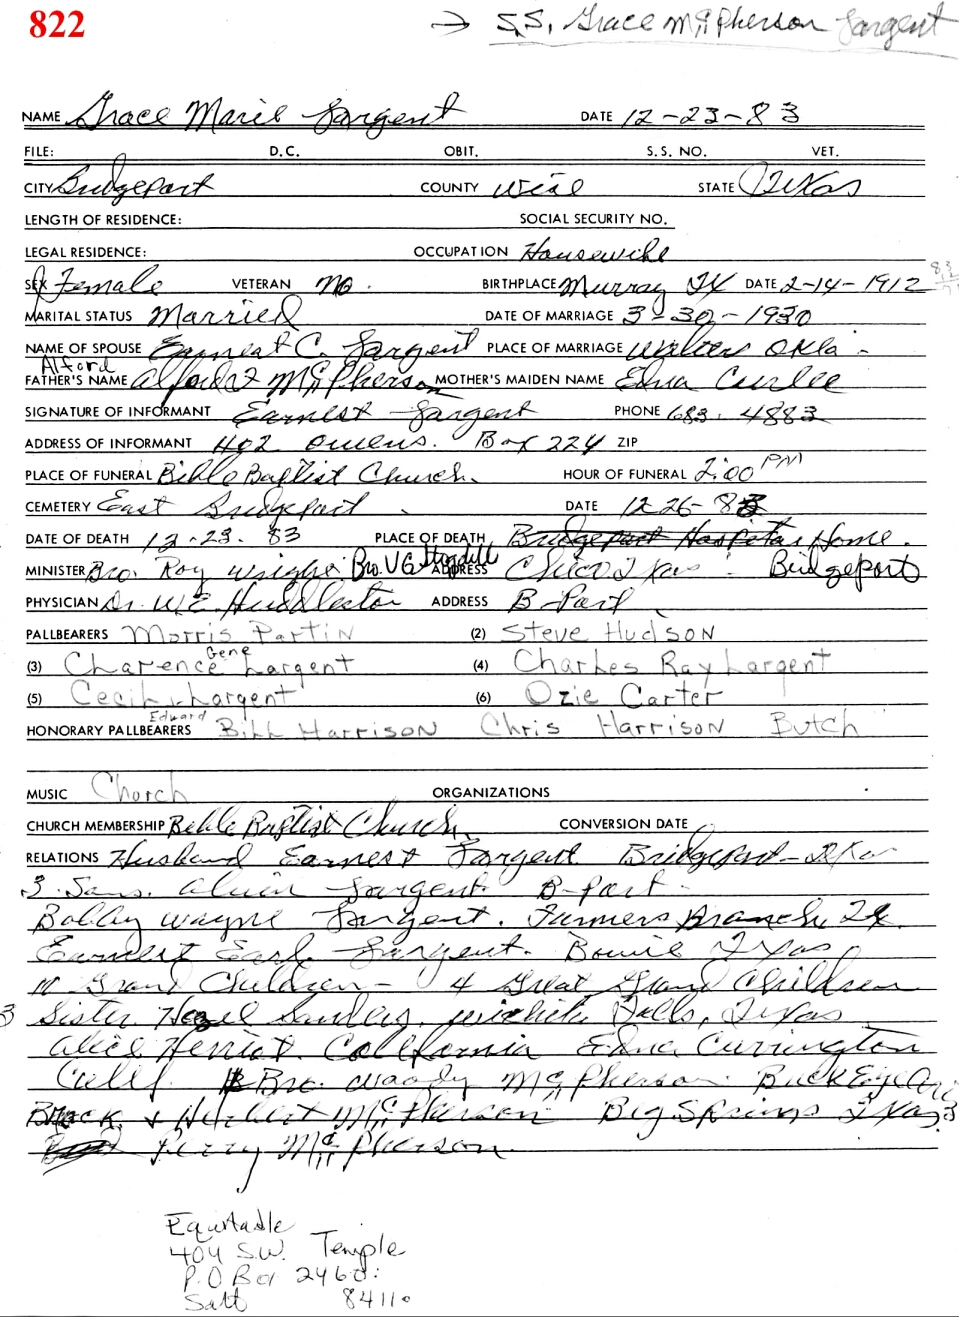 822
→ S.S. Grace McPherson Largent
NAME Grace Marie Largent DATE 12-23-83
FILE: D.C. OBIT. S.S. NO. VET.
CITY Bridgeport COUNTY Wise STATE Texas
LENGTH OF RESIDENCE: SOCIAL SECURITY NO.
LEGAL RESIDENCE: OCCUPATION Housewife
SEX Female VETERAN No. BIRTHPLACE Murray TX DATE 2-14-1912
MARITAL STATUS Married DATE OF MARRIAGE 3-30-1930
NAME OF SPOUSE Earnest C. Largent PLACE OF MARRIAGE Walters Okla-
Alford
FATHER'S NAME McPherson MOTHER'S MAIDEN NAME Edna Curlee
SIGNATURE OF INFORMANT Earnest Largent PHONE 683-4883
ADDRESS OF INFORMANT 402 Owens. Box 224 ZIP
PLACE OF FUNERAL Bible Baptist Church. HOUR OF FUNERAL 2:00 PM
CEMETERY East Bridgeport DATE 12-26-83
DATE OF DEATH 12-23-83 PLACE OF DEATH Bridgeport Hospital Home.
MINISTER Bro. Roy Wright Bro. V.G. ADDRESS Chico Texas Bridgeport
PHYSICIAN Dr. W.E. Huddleston ADDRESS B-Port
PALLBEARERS Morris Partin (2) Steve Hudson
(3) Clarence Gene Largent (4) Charles Ray Largent
(5) Cecil Largent (6) Ozie Carter
Edward
HONORARY PALLBEARERS Bill Harrison Chris Harrison Butch
MUSIC Church ORGANIZATIONS
CHURCH MEMBERSHIP Bible Baptist Church. CONVERSION DATE
RELATIONS Husband Earnest Largent Bridgeport-Texas
3 Sons. Alvin Largent B-Port-
Bobby Wayne Largent. Farmers Branch TX.
Earnest Earl Largent. Bowie Texas
10 Grand Children- 4 Great Grand Children
3 Sister Hazel Sanders, Wichita Falls, Texas
Alice Herriot. California Edna Currington
Calif. Bro. Woody McPherson Buckeye Ariz
Brack & Herbert McPherson Big Springs Texas 3
Perry McPherson.
Equitable
404 S.W. Temple
P.O Box 2460
Salt 84110